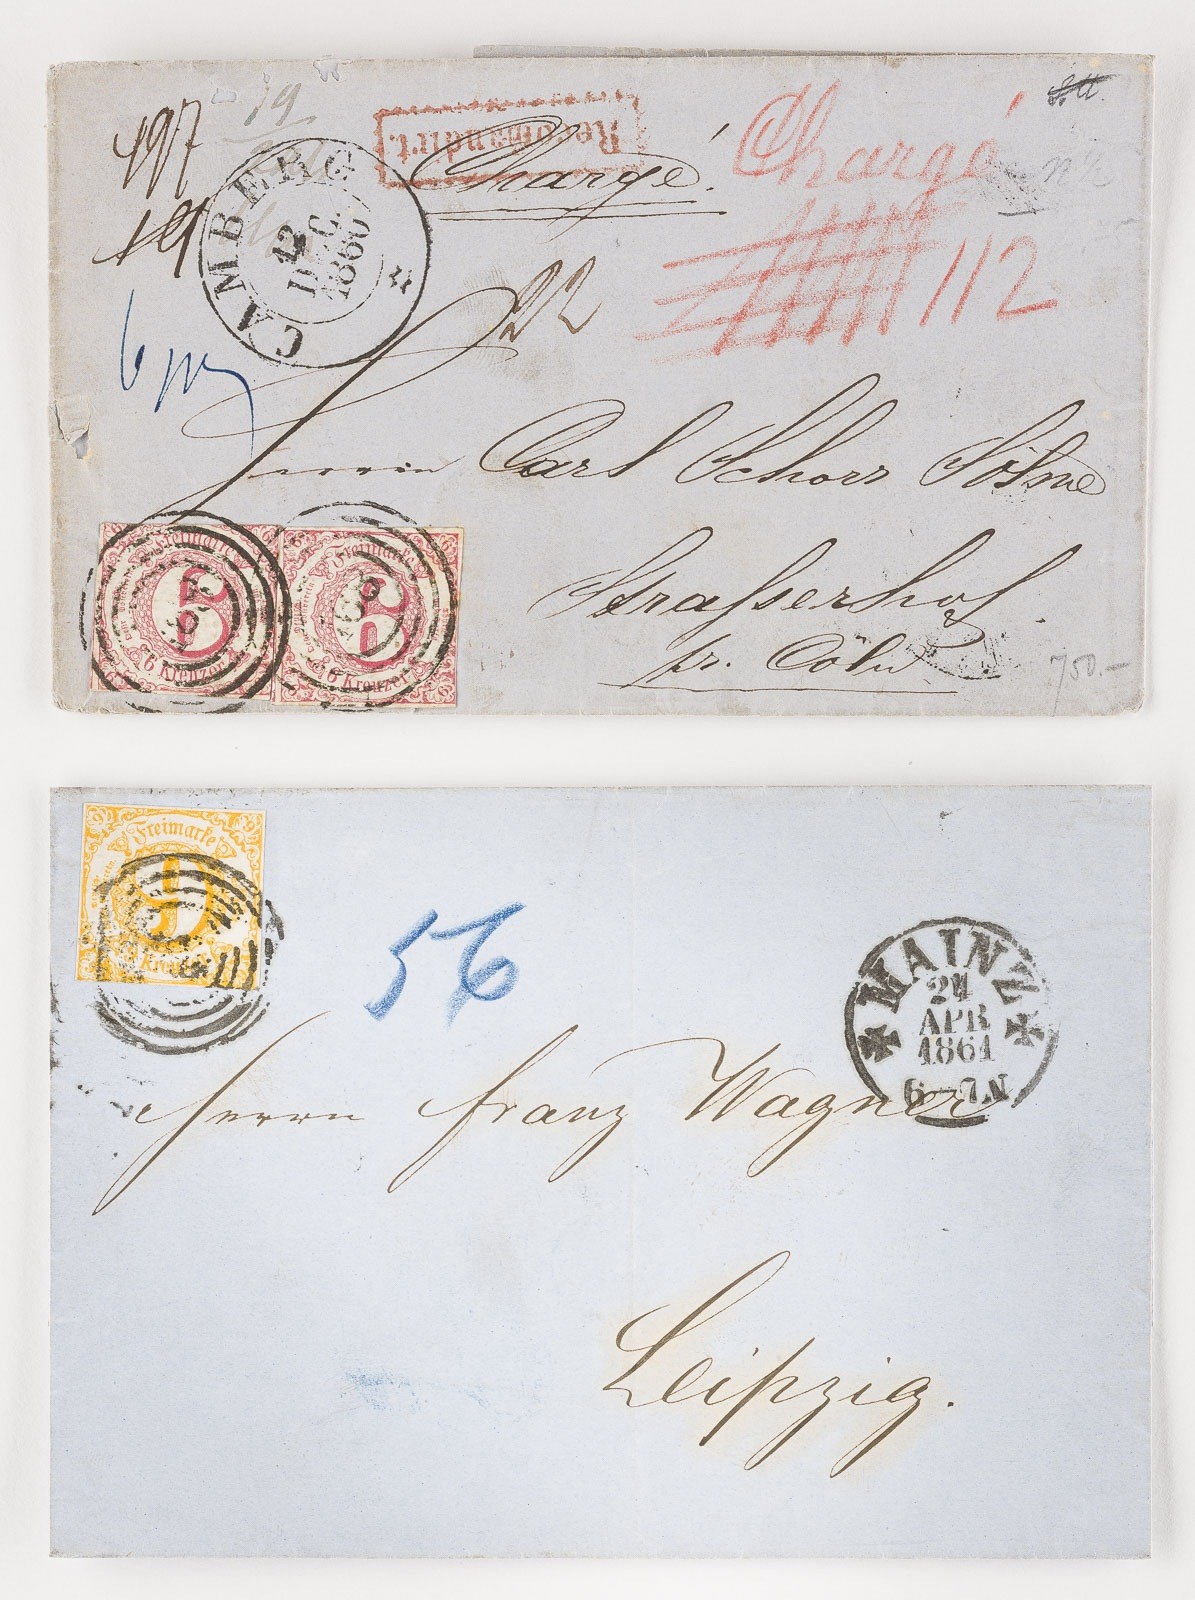 197
19
19
CAMBERG
12
DEC
1860
Recomandirt.
Chargé.
Chargé
112
22
Herrn Carl Schorr Söhne
Strasserhof
pr. Cöln
750.-
Freimarke
6
6 Kreuzer
Freimarke
6
6 Kreuzer
Freimarke
9
9 Kreuzer
56
MAINZ
24
APR
1861
6-7N
Herrn Franz Wagner
Leipzig.